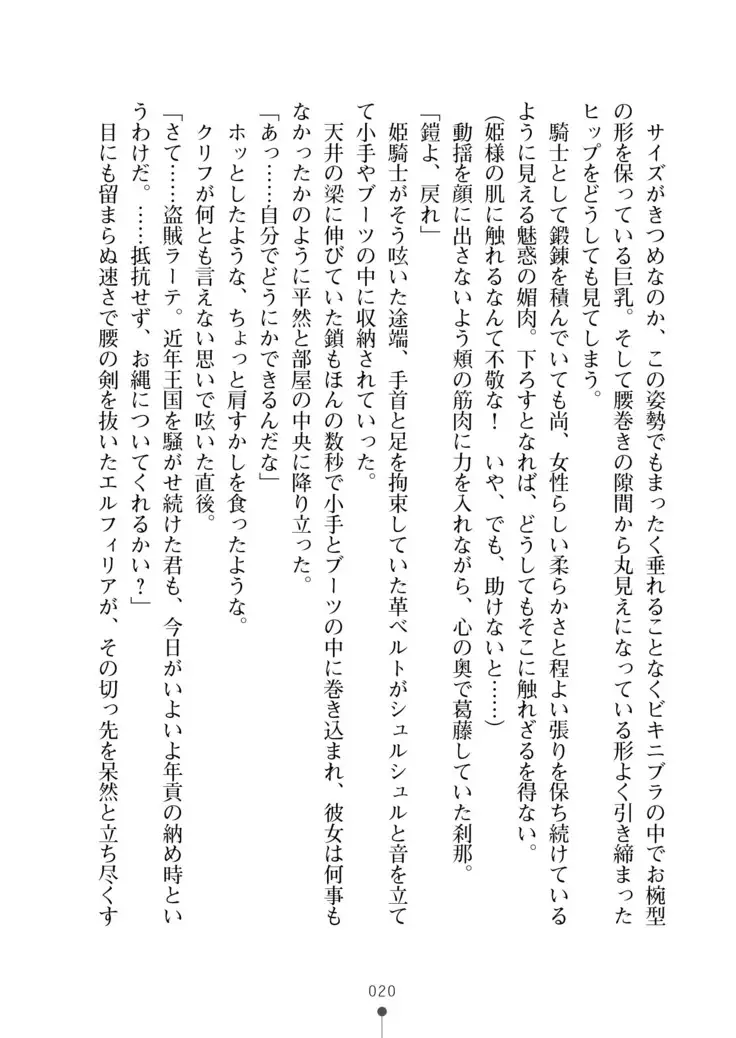 サイズがきつめなのか、この姿勢でもまったく垂れることなくビキニブラの中でお椀型
の形を保っている巨乳。そして腰巻きの隙間から丸見えになっている形よく引き締まった
ヒップをどうしても見てしまう。
　騎士として鍛錬を積んでいても尚、女性らしい柔らかさと程よい張りを保ち続けている
ように見える魅惑の媚肉。下ろすとなれば、どうしてもそこに触れざるを得ない。
（姫様の肌に触れるなんて不敬な！　いや、でも、助けないと……）
　動揺を顔に出さないよう頬の筋肉に力を入れながら、心の奥で葛藤していた刹那。
「鎧よ、戻れ」
　姫騎士がそう呟いた途端、手首と足を拘束していた革ベルトがシュルシュルと音を立て
て小手やブーツの中に収納されていった。
　天井の梁に伸びていた鎖もほんの数秒で小手とブーツの中に巻き込まれ、彼女は何事も
なかったかのように平然と部屋の中央に降り立った。
「あっ……自分でどうにかできるんだな」
　ホッとしたような、ちょっと肩すかしを食ったような。
　クリフが何とも言えない思いで呟いた直後。
「さて……盗賊ラーテ。近年王国を騒がせ続けた君も、今日がいよいよ年貢の納め時とい
うわけだ。……抵抗せず、お縄についてくれるかい？」
　目にも留まらぬ速さで腰の剣を抜いたエルフィリアが、その切っ先を呆然と立ち尽くす
020